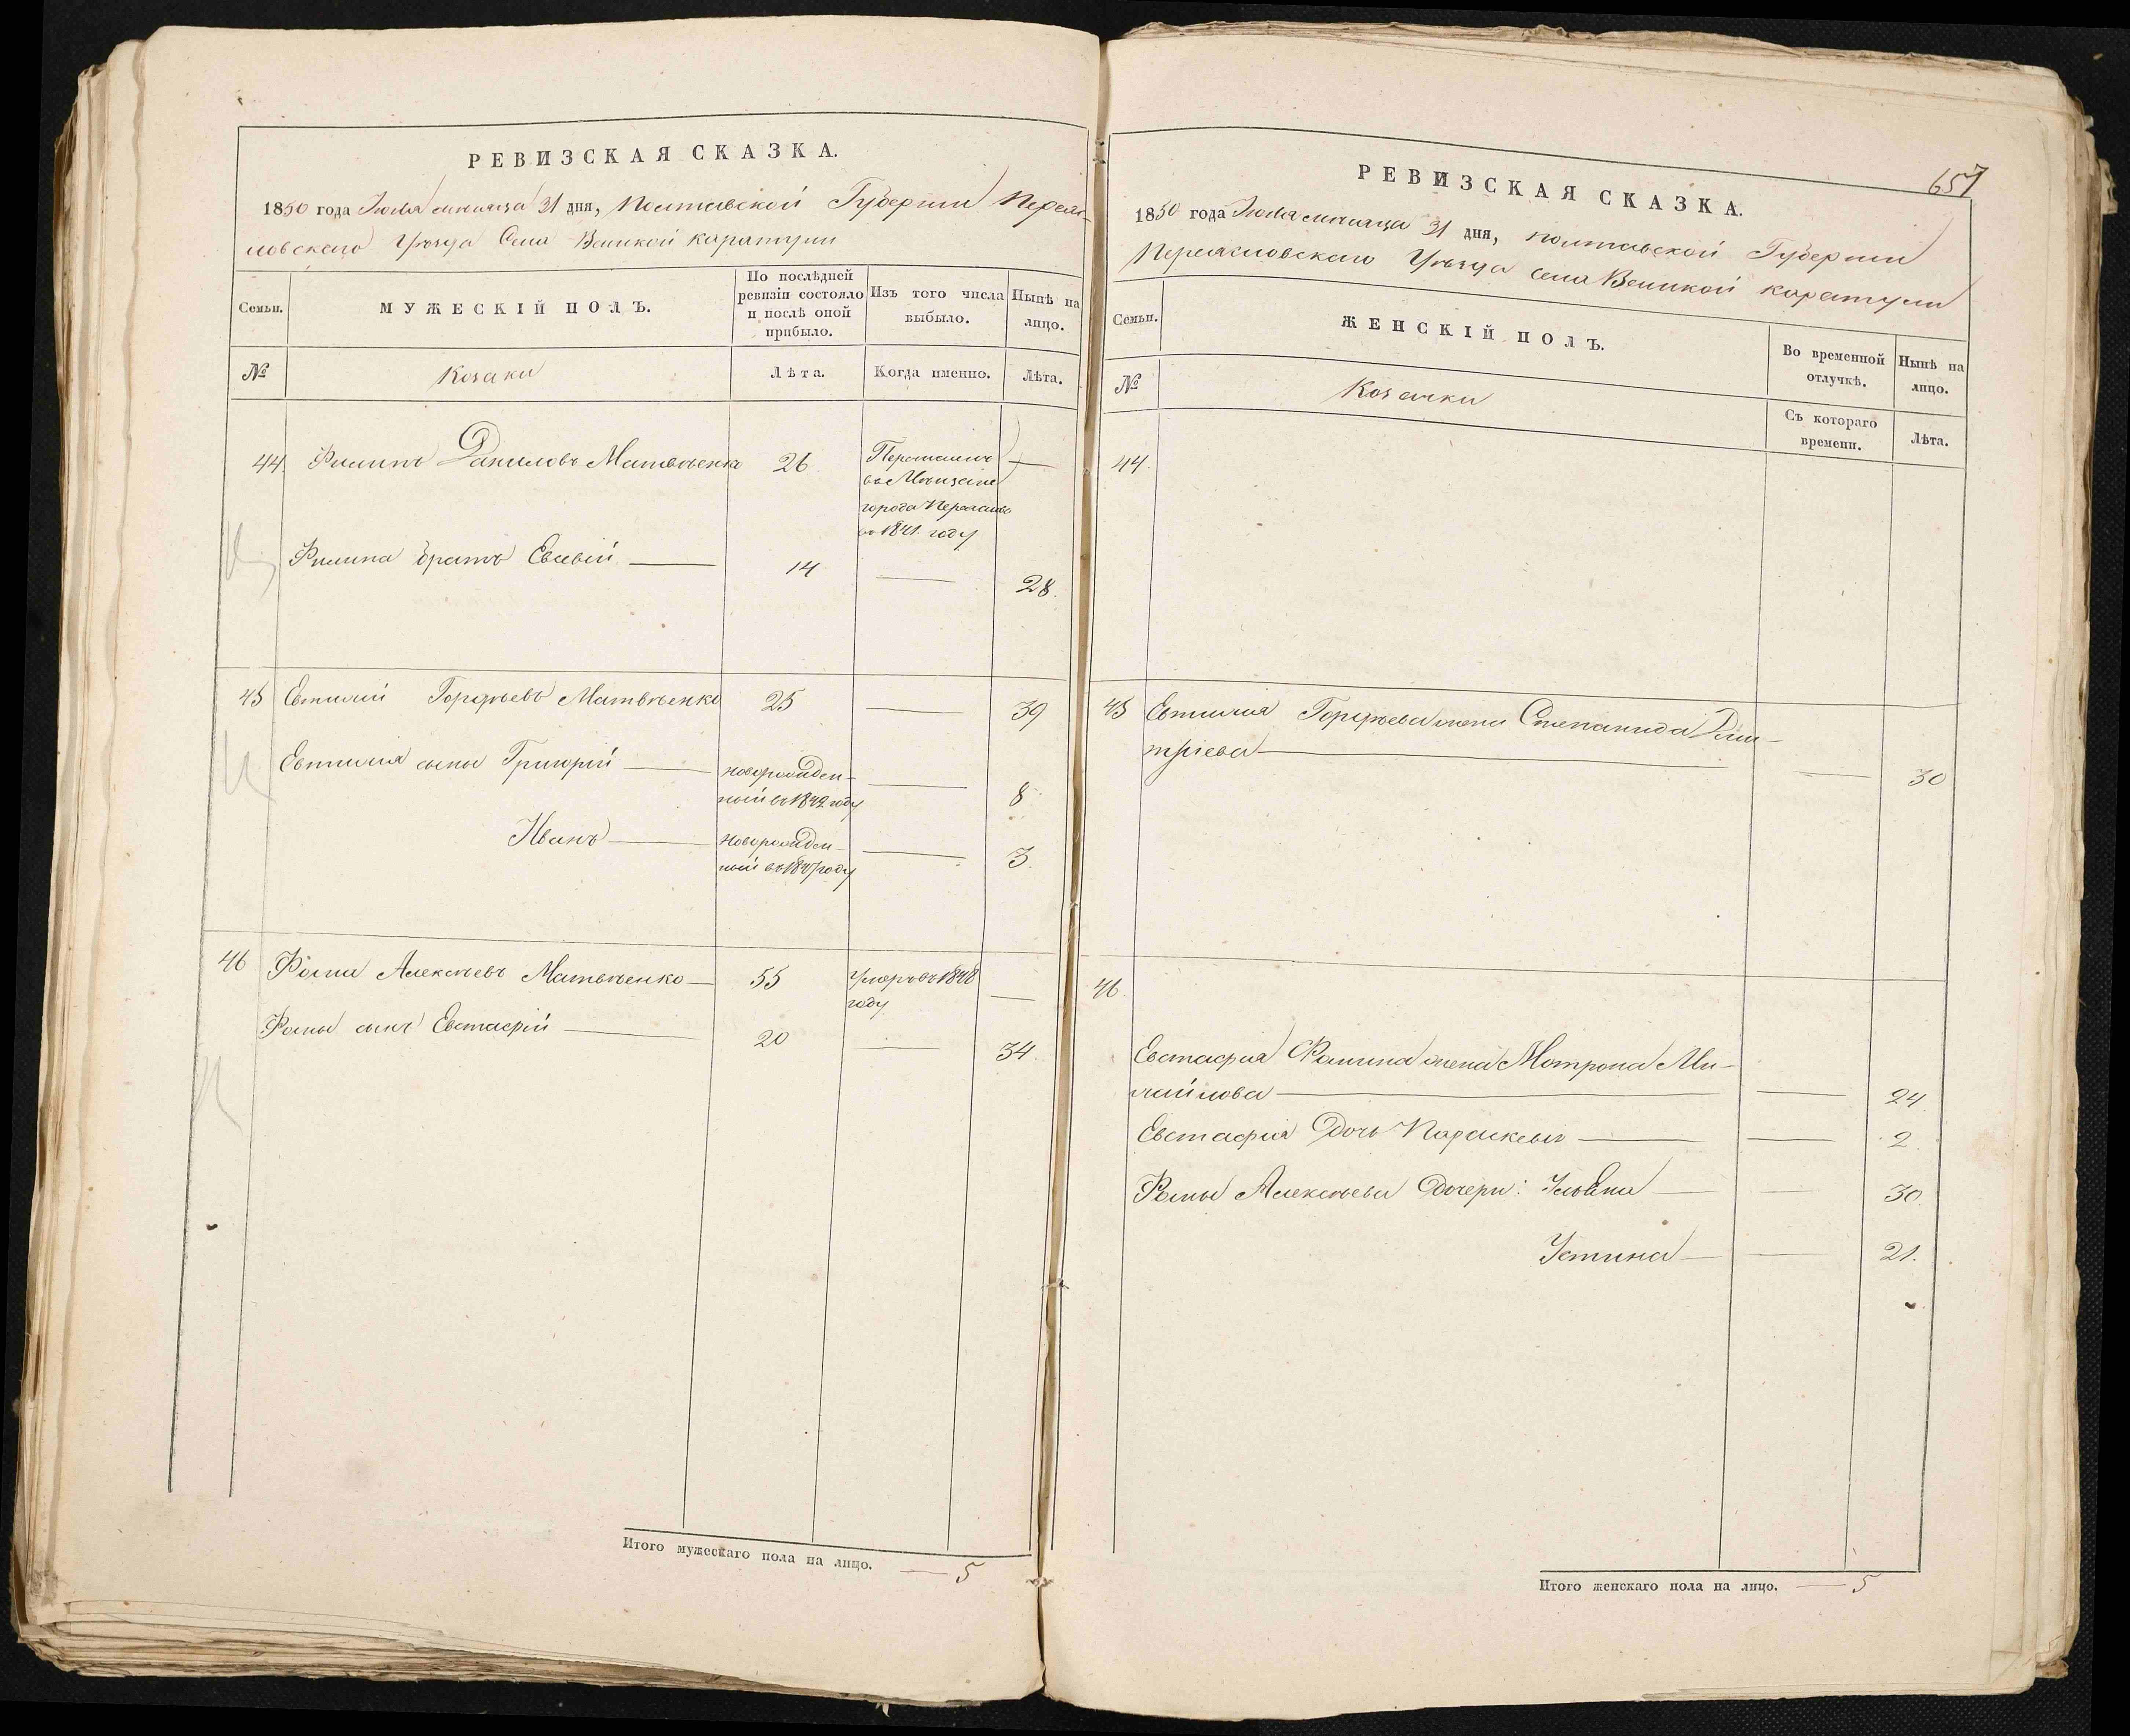 РЕВИЗСКАЯ СКАЗКА.
1850 года Июля месяца 31 дня, Полтавской Губернии Перея-
словского Уѣзда Села Великой Каратули
Семьи.
МУЖЕСКІЙ ПОЛЪ.
По послѣдней
ревизіи состояло
и послѣ оной
прибыло.
Изъ того числа
выбыло.
Нынѣ на
лицо.
№
Козаки
Лѣта.
Когда именно.
Лѣта.
44. Филипъ Даниловъ Матвѣенко 26
города Переяслова
въ 1841 году
Филипа братъ Евсевій 14 28.
45 Евтихій Гордѣевъ Матвѣенко 25 39
Евтихія сыны Григорій новорожден-
ный въ 1842 году 8
Иванъ новорожден-
ный въ 1847 году 3.
46 Фома Алексѣевъ Матвѣенко 55 Умеръ въ 1848
году
Фомы сынъ Евстафій 20 34.
Итого мужескаго пола на лицо. 5
657
РЕВИЗСКАЯ СКАЗКА.
1850 года Июля месяца 31 дня, Полтавской Губернии
Переясловского Уѣзда Села Великой Каратули
Семьи.
ЖЕНСКІЙ ПОЛЪ.
Во временной
отлучкѣ.
Нынѣ на
лицо.
№
Козачки
Съ котораго
времени.
Лѣта.
44.
45 Евтихія Гордѣева жена Степанида Дми-
тріева 30
46.
Евстафія Фомина жена Мотрона Ми-
хайлова 24.
Евстафія дочь Параскевія 2
Фомы Алексѣева дочери: Ульяна 30.
Устина 21.
Итого женскаго пола на лицо. 5